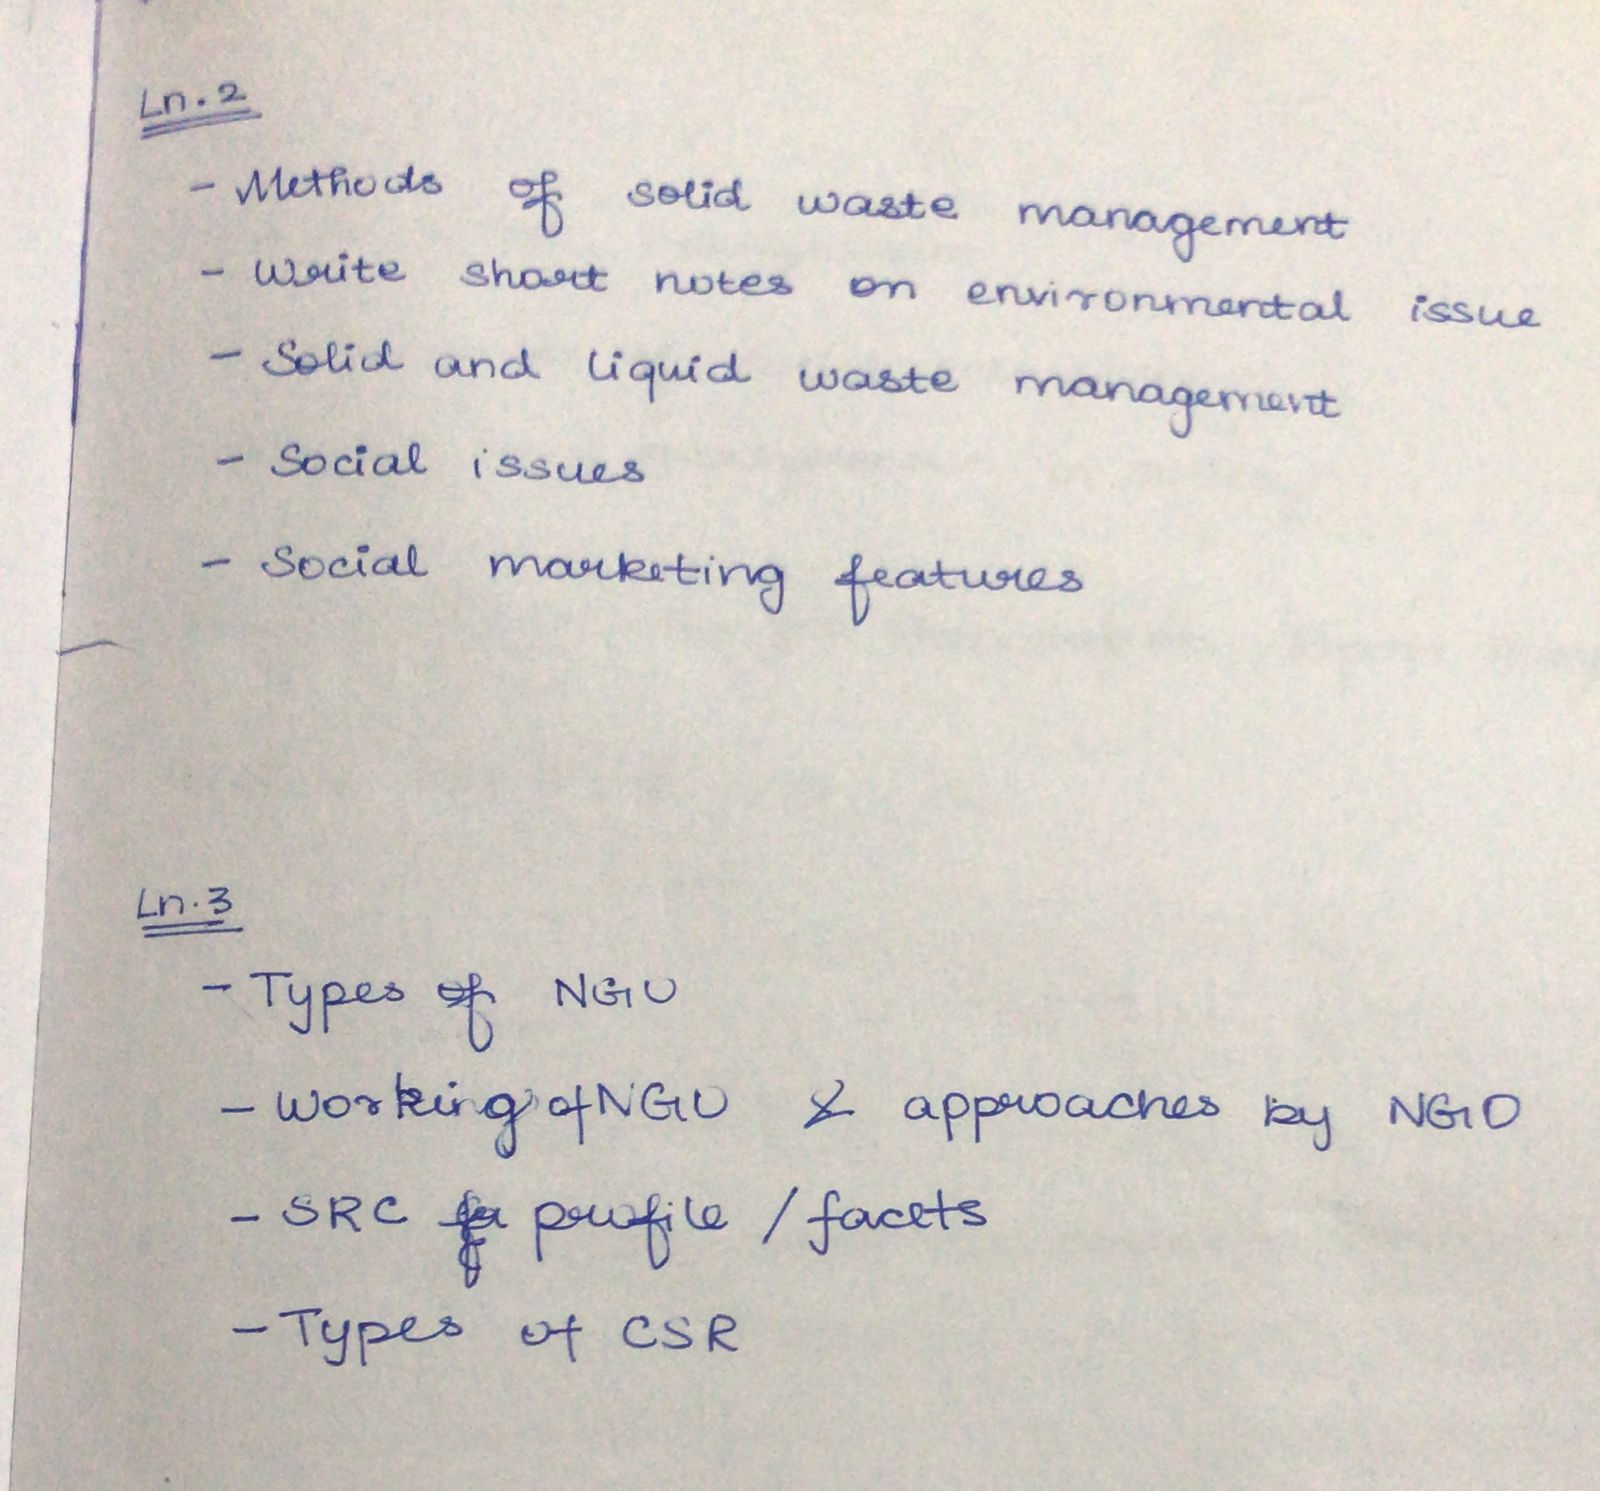 Ln.2
- Methods of solid waste management
- Write short notes on environmental issue
- Solid and liquid waste management
- Social issues
- Social marketing features
Ln.3
- Types of NGO
- Working of NGO & approaches by NGO
- SRC profile / facets
- Types of CSR